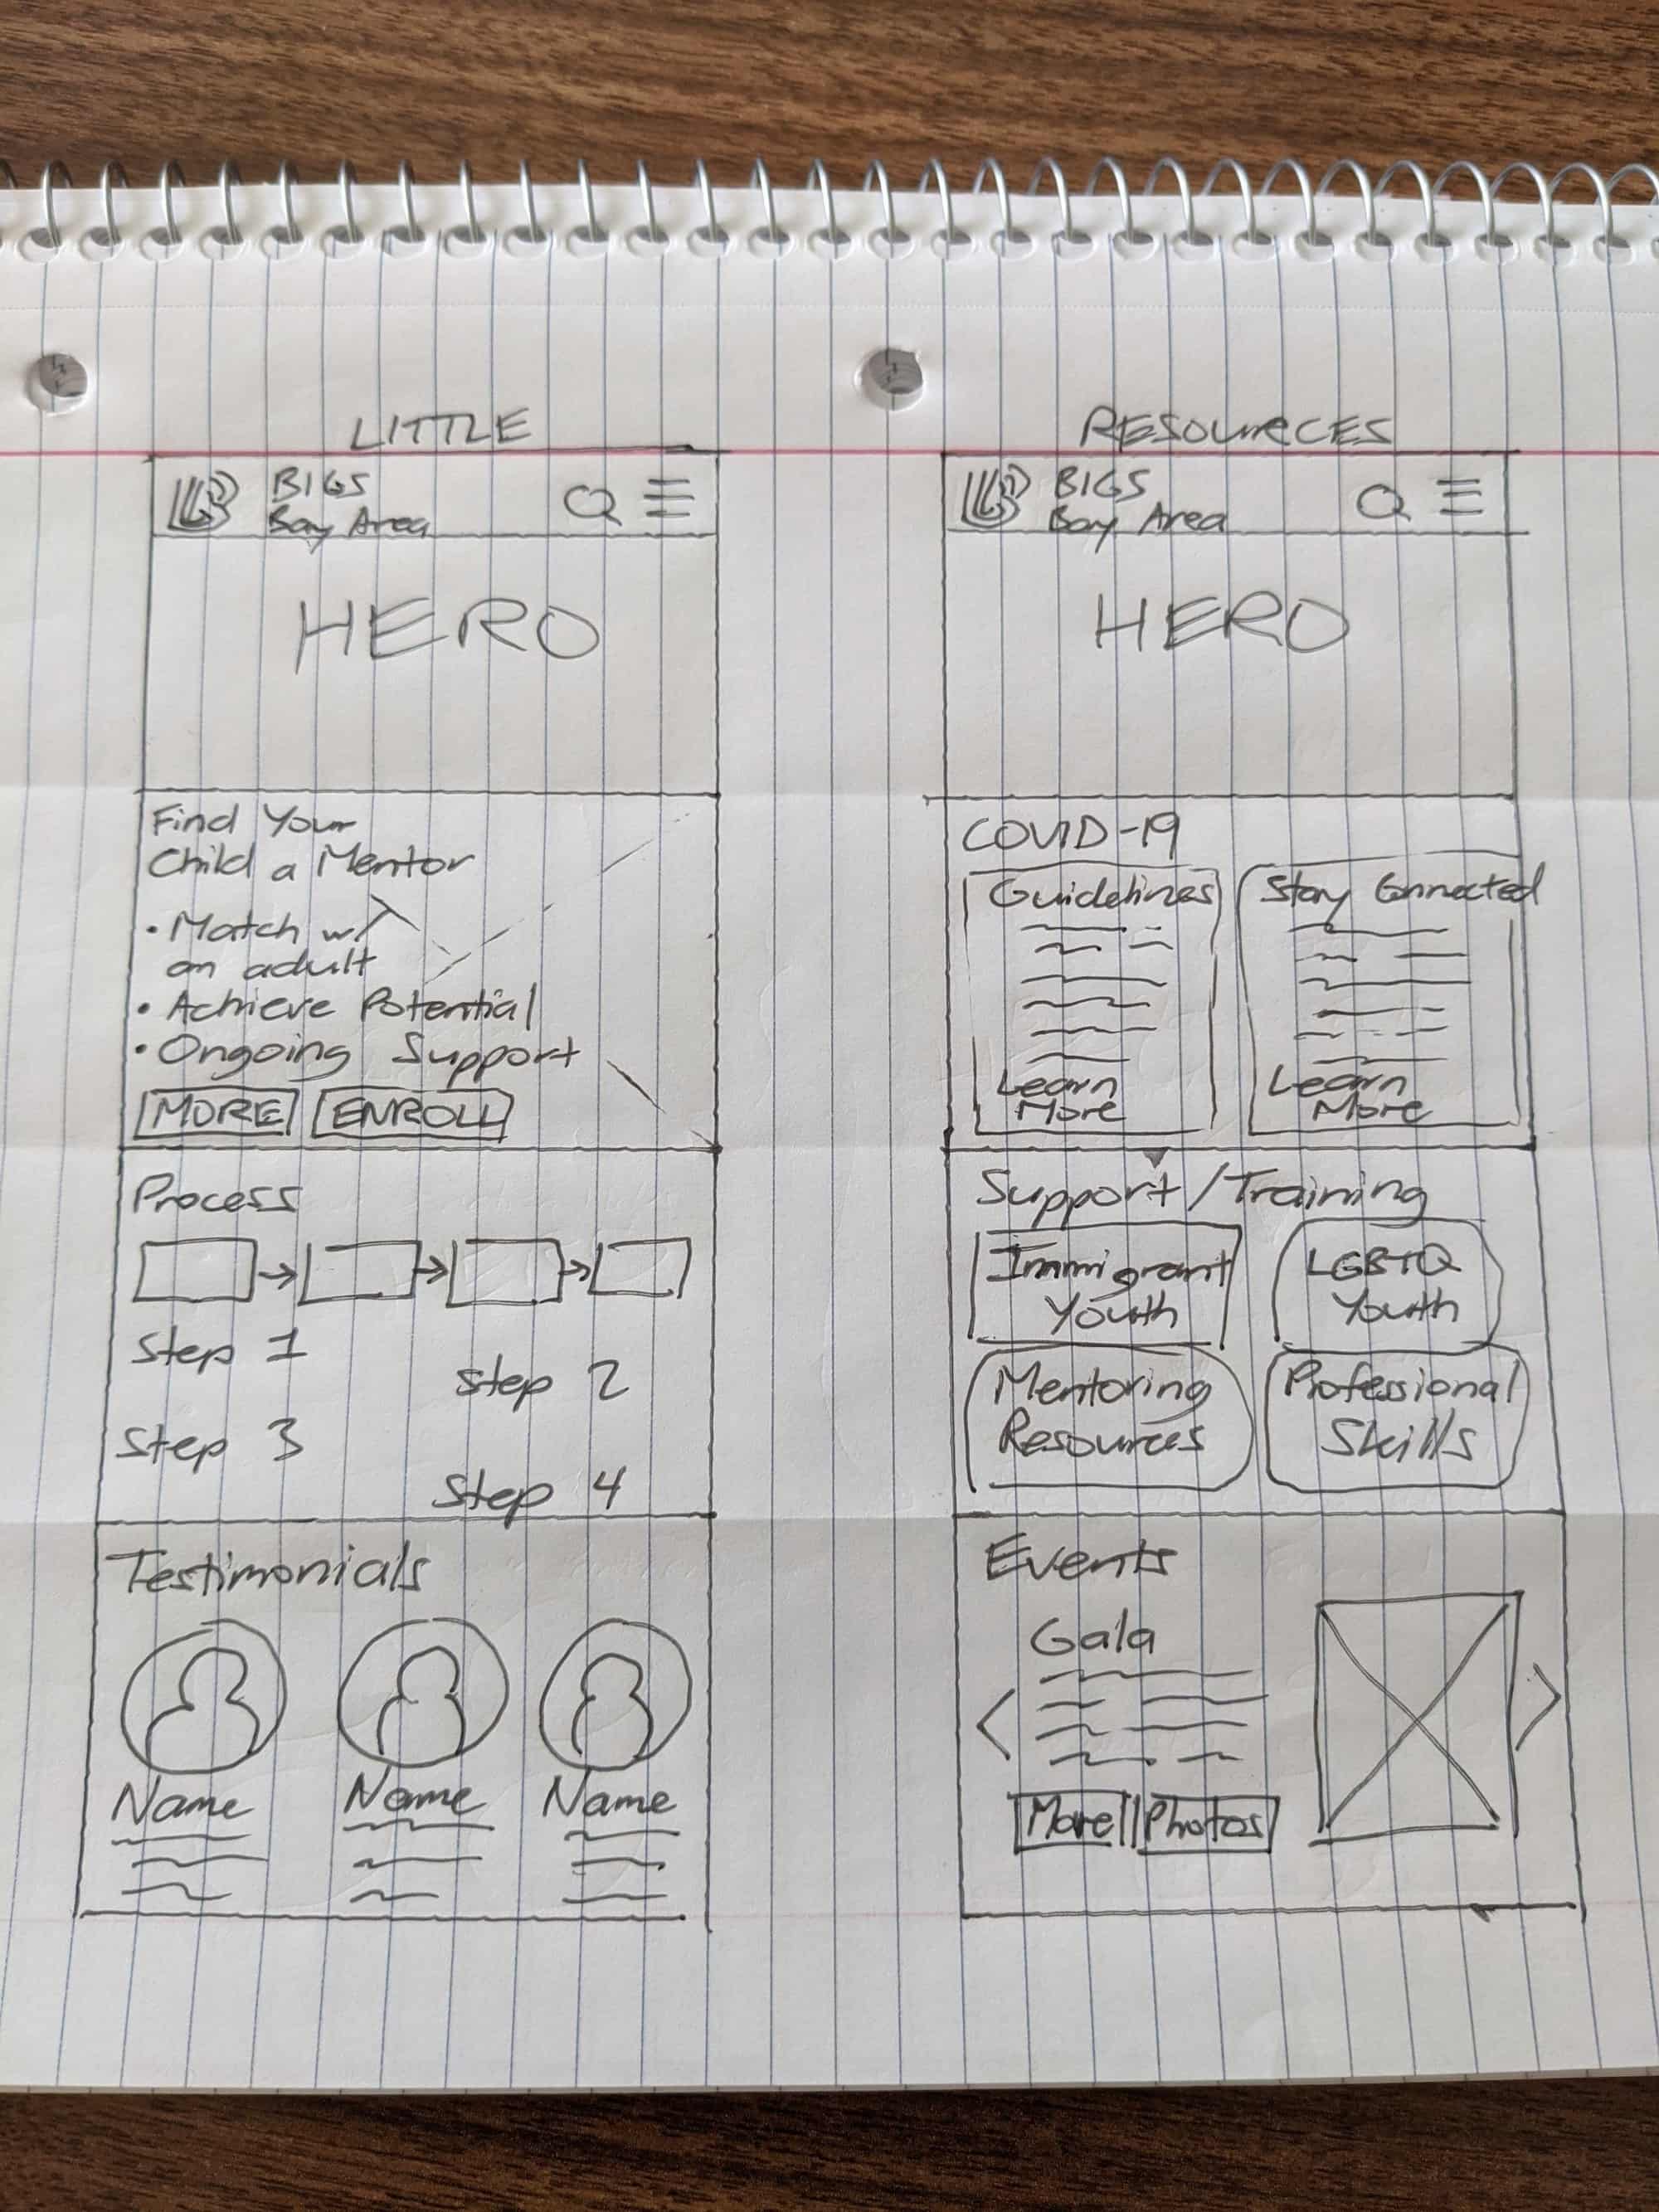 LITTLE
BIGS
Bay Area
HERO
Find Your
Child a Mentor
• Match w/
an adult
• Achieve Potential
• Ongoing Support
MORE ENROLL
Process
Step 1
Step 2
Step 3
Step 4
Testimonials
Name Name Name
RESOURCES
BIGS
Bay Area
HERO
COVID-19
Guidelines
Learn
More
Stay Connected
Learn
More
Support/Training
Immigrant
Youth
LGBTQ
Youth
Mentoring
Resources
Professional
Skills
Events
Gala
More Photos